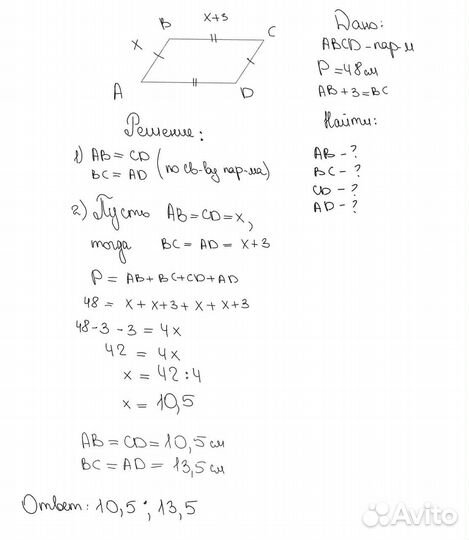 B
x+3
C
x
A
D
Дано:
ABCD - пар-м
P = 48 см
AB + 3 = BC
Найти:
AB - ?
BC - ?
CD - ?
AD - ?
Решение:
1) AB = CD
BC = AD (по св-ву пар-ма)
2) Пусть AB = CD = x,
тогда BC = AD = x+3
P = AB + BC + CD + AD
48 = x + x+3 + x + x+3
48 - 3 - 3 = 4x
42 = 4x
x = 42 : 4
x = 10,5
AB = CD = 10,5 см
BC = AD = 13,5 см
Ответ: 10,5 ; 13,5
Avito